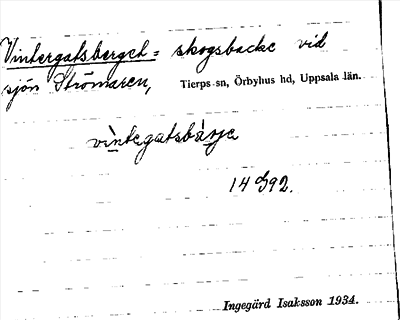 Vintergatsberget = skogsbacke vid
sjön Strömaren, Tierps sn, Örbyhus hd, Uppsala län.
vìntegatsbärje
14 S92.
Ingegärd Isaksson 1934.